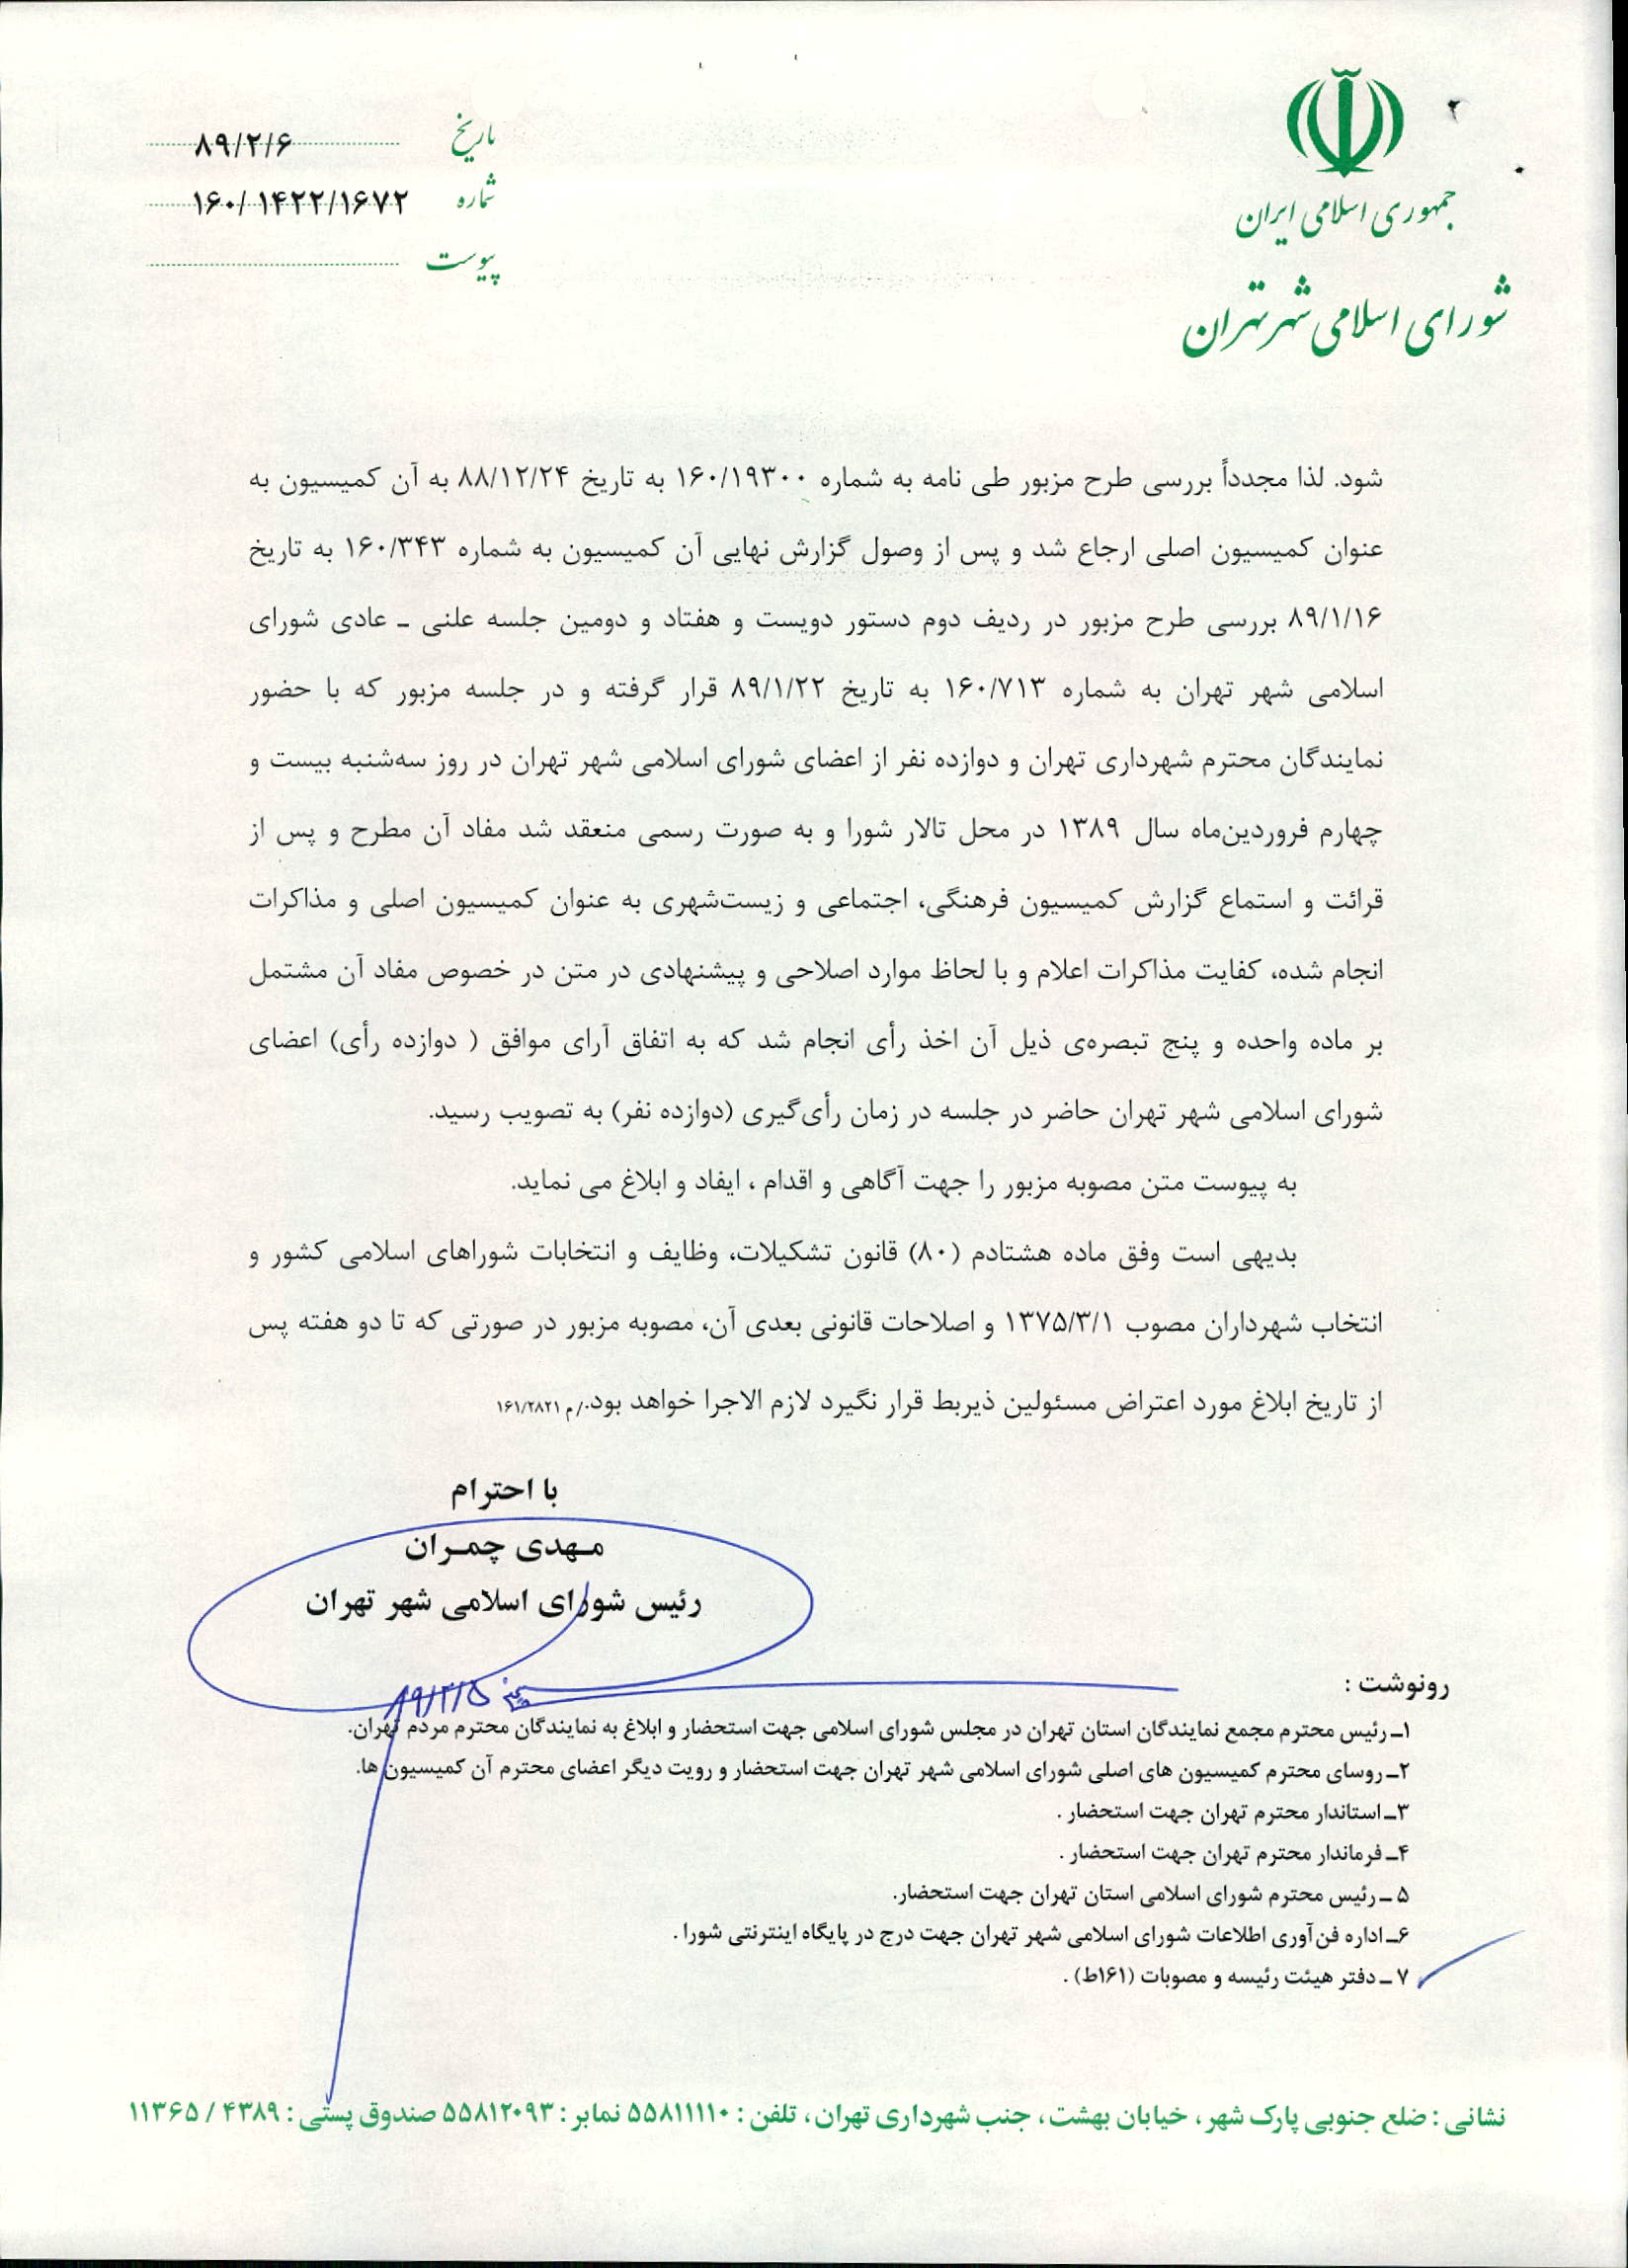 ۲
جمهوری اسلامی ایران
شورای اسلامی شهر تهران
تاریخ ۸۹/۲/۶
شماره ۱۶۰/۱۴۲۲/۱۶۷۲
پیوست
شود. لذا مجدداً بررسی طرح مزبور طی نامه به شماره ۱۶۰/۱۹۳۰۰ به تاریخ ۸۸/۱۲/۲۴ به آن کمیسیون به
عنوان کمیسیون اصلی ارجاع شد و پس از وصول گزارش نهایی آن کمیسیون به شماره ۱۶۰/۳۴۳ به تاریخ
۸۹/۱/۱۶ بررسی طرح مزبور در ردیف دوم دستور دویست و هفتاد و دومین جلسه علنی ـ عادی شورای
اسلامی شهر تهران به شماره ۱۶۰/۷۱۳ به تاریخ ۸۹/۱/۲۲ قرار گرفته و در جلسه مزبور که با حضور
نمایندگان محترم شهرداری تهران و دوازده نفر از اعضای شورای اسلامی شهر تهران در روز سه‌شنبه بیست و
چهارم فروردین‌ماه سال ۱۳۸۹ در محل تالار شورا و به صورت رسمی منعقد شد مفاد آن مطرح و پس از
قرائت و استماع گزارش کمیسیون فرهنگی، اجتماعی و زیست‌شهری به عنوان کمیسیون اصلی و مذاکرات
انجام شده، کفایت مذاکرات اعلام و با لحاظ موارد اصلاحی و پیشنهادی در متن در خصوص مفاد آن مشتمل
بر ماده واحده و پنج تبصره‌ی ذیل آن اخذ رأی انجام شد که به اتفاق آرای موافق ( دوازده رأی) اعضای
شورای اسلامی شهر تهران حاضر در جلسه در زمان رأی‌گیری (دوازده نفر) به تصویب رسید.
به پیوست متن مصوبه مزبور را جهت آگاهی و اقدام ، ایفاد و ابلاغ می نماید.
بدیهی است وفق ماده هشتادم (۸۰) قانون تشکیلات، وظایف و انتخابات شوراهای اسلامی کشور و
انتخاب شهرداران مصوب ۱۳۷۵/۳/۱ و اصلاحات قانونی بعدی آن، مصوبه مزبور در صورتی که تا دو هفته پس
از تاریخ ابلاغ مورد اعتراض مسئولین ذیربط قرار نگیرد لازم الاجرا خواهد بود./م ۱۶۱/۲۸۲۱
با احترام
مـهدی چمـران
رئیس شورای اسلامی شهر تهران
۸۹/۲/۵
رونوشت :
۱ـ رئیس محترم مجمع نمایندگان استان تهران در مجلس شورای اسلامی جهت استحضار و ابلاغ به نمایندگان محترم مردم تهران.
۲ـ روسای محترم کمیسیون های اصلی شورای اسلامی شهر تهران جهت استحضار و رویت دیگر اعضای محترم آن کمیسیون ها.
۳ـ استاندار محترم تهران جهت استحضار .
۴ـ فرماندار محترم تهران جهت استحضار .
۵ ـ رئیس محترم شورای اسلامی استان تهران جهت استحضار.
۶ـ اداره فن‌آوری اطلاعات شورای اسلامی شهر تهران جهت درج در پایگاه اینترنتی شورا .
۷ ـ دفتر هیئت رئیسه و مصوبات (۱۶۱ط) .
نشانی : ضلع جنوبی پارک شهر ، خیابان بهشت ، جنب شهرداری تهران ، تلفن : ۵۵۸۱۱۱۱۰ نمابر : ۵۵۸۱۲۰۹۳ صندوق پستی : ۴۳۸۹ / ۱۱۳۶۵